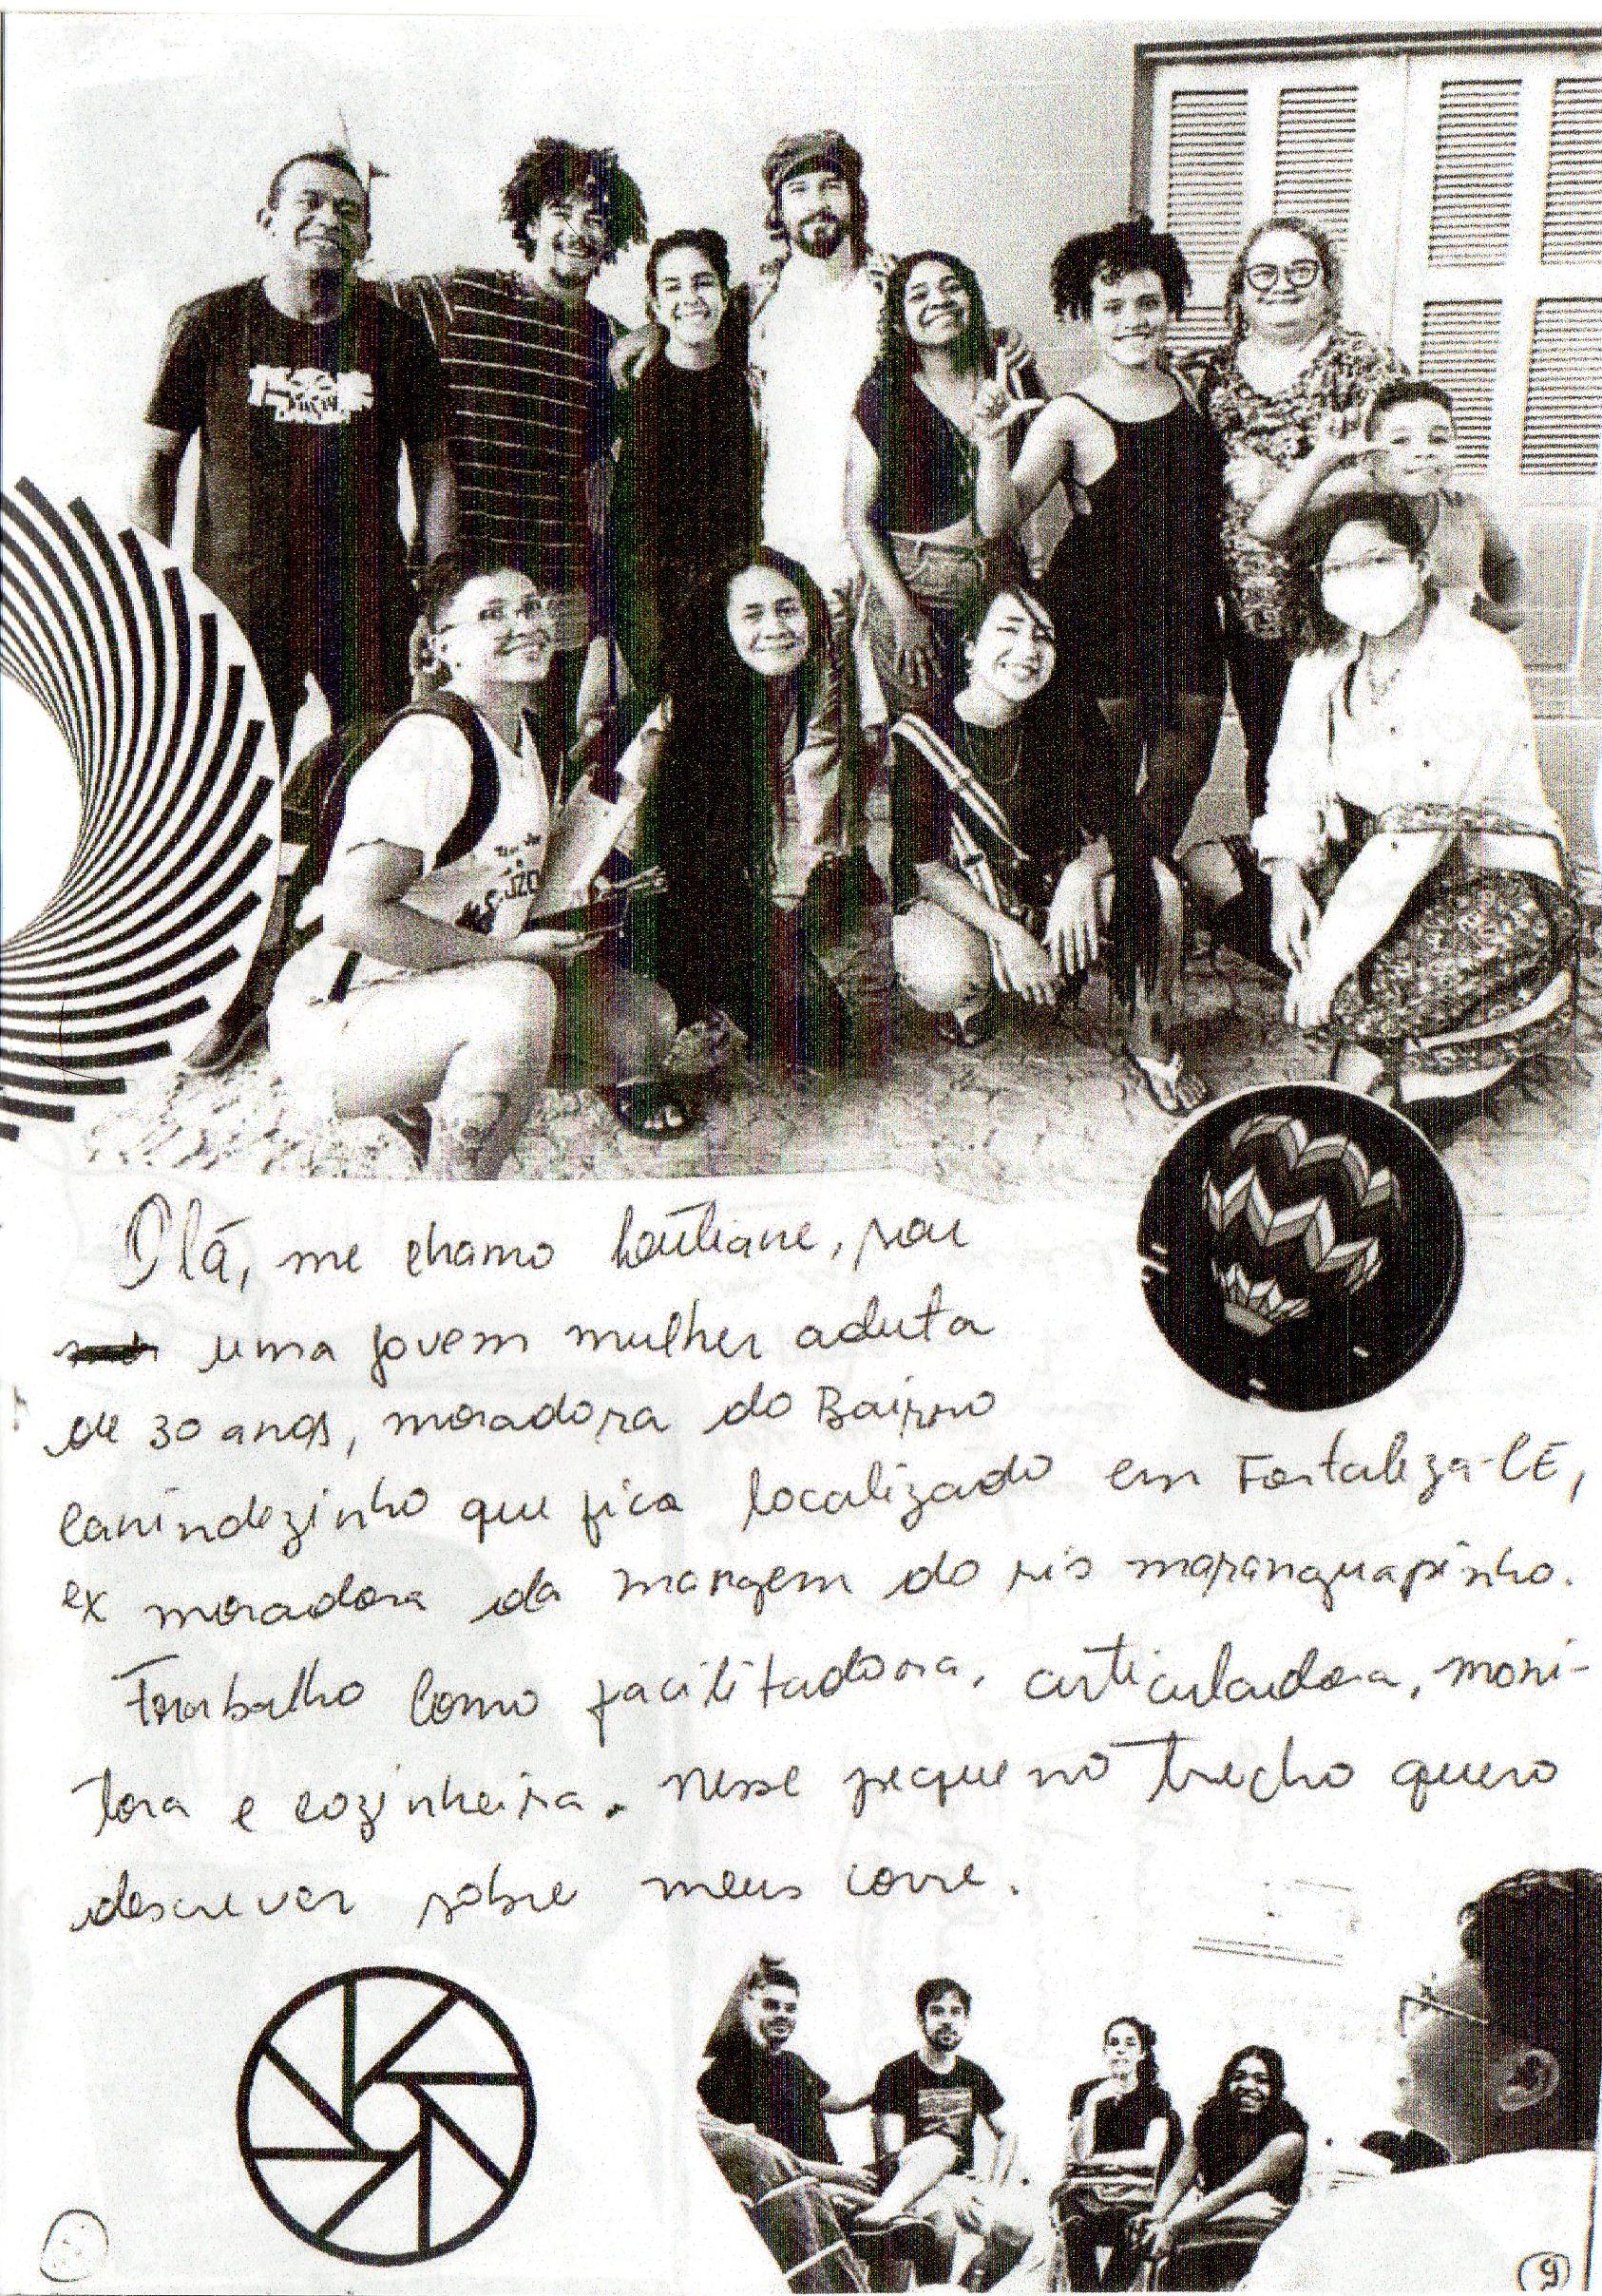 Olá, me chamo sou
uma jovem mulher aduta
de 30 anos, moradora do Bairro
Canindezinho que fica localizado em Fortaleza-CE,
ex moradora da margem do rio maranguapinho.
Trabalho como facilitadora, articuladora, moni-
tora e cozinheira. nesse pequeno trecho quero
descrever sobre meus corre.
9